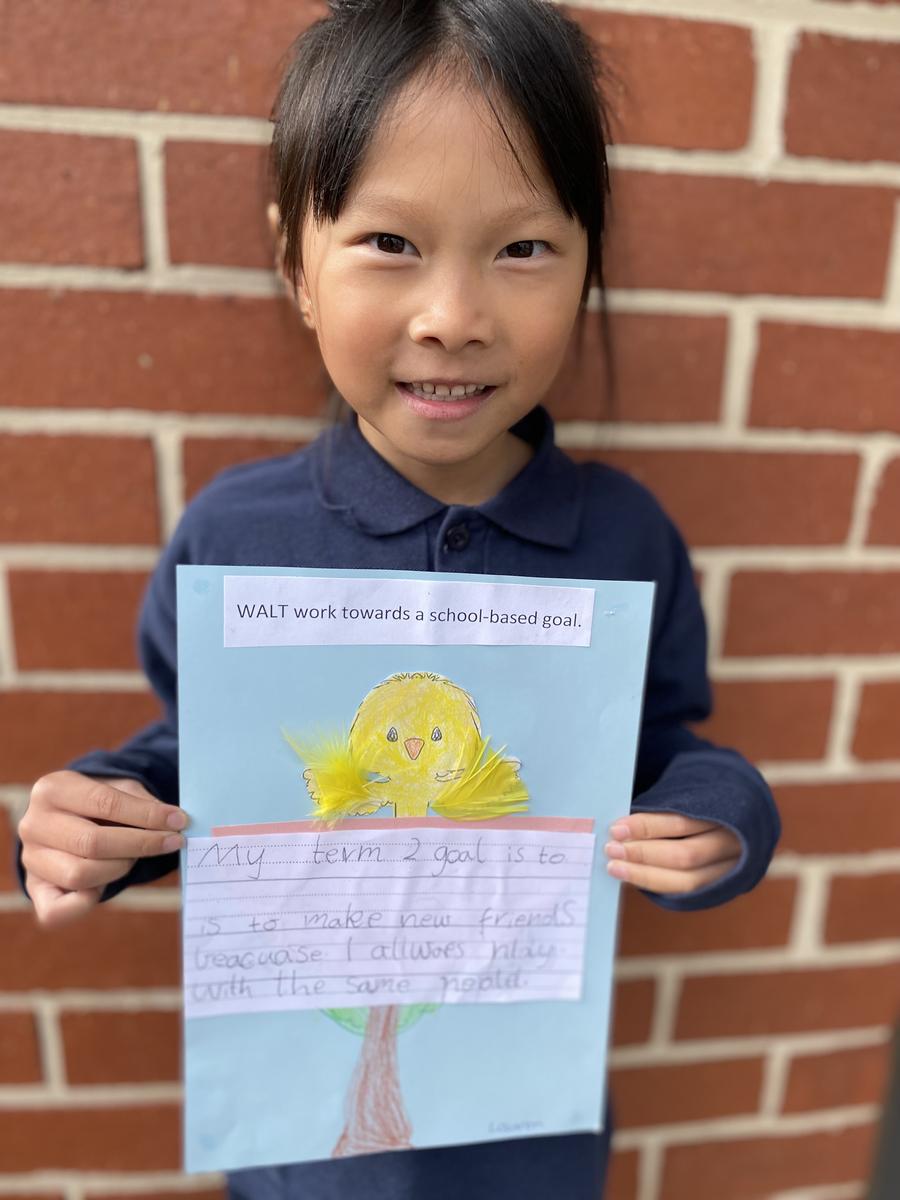 WALT work towards a school-based goal.
My term 2 goal is to
is to make new friends
beacuaise I allwoes play
with the same people.
Lauren